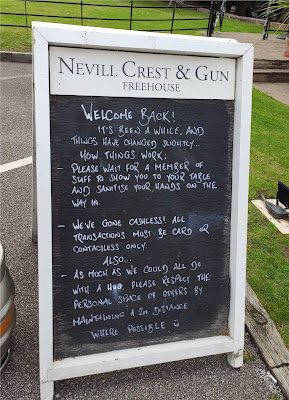 NEVILL CREST & GUN
FREEHOUSE
WELCOME BACK!
IT'S BEEN A WHILE, AND
THINGS HAVE CHANGED SLIGHTLY...
HOW THINGS WORK;
PLEASE WAIT FOR A MEMBER OF
STAFF TO SHOW YOU TO YOUR TABLE
AND SANITISE YOUR HANDS ON THE
WAY IN.
- WE'VE GONE CASHLESS! ALL
TRANSACTIONS MUST BE CARD OR
CONTACTLESS ONLY.
ALSO...
- AS MUCH AS WE COULD ALL DO
WITH A HUG, PLEASE RESPECT THE
PERSONAL SPACE OF OTHERS BY
MAINTAINING A 2M DISTANCE
WHERE POSSIBLE ☺